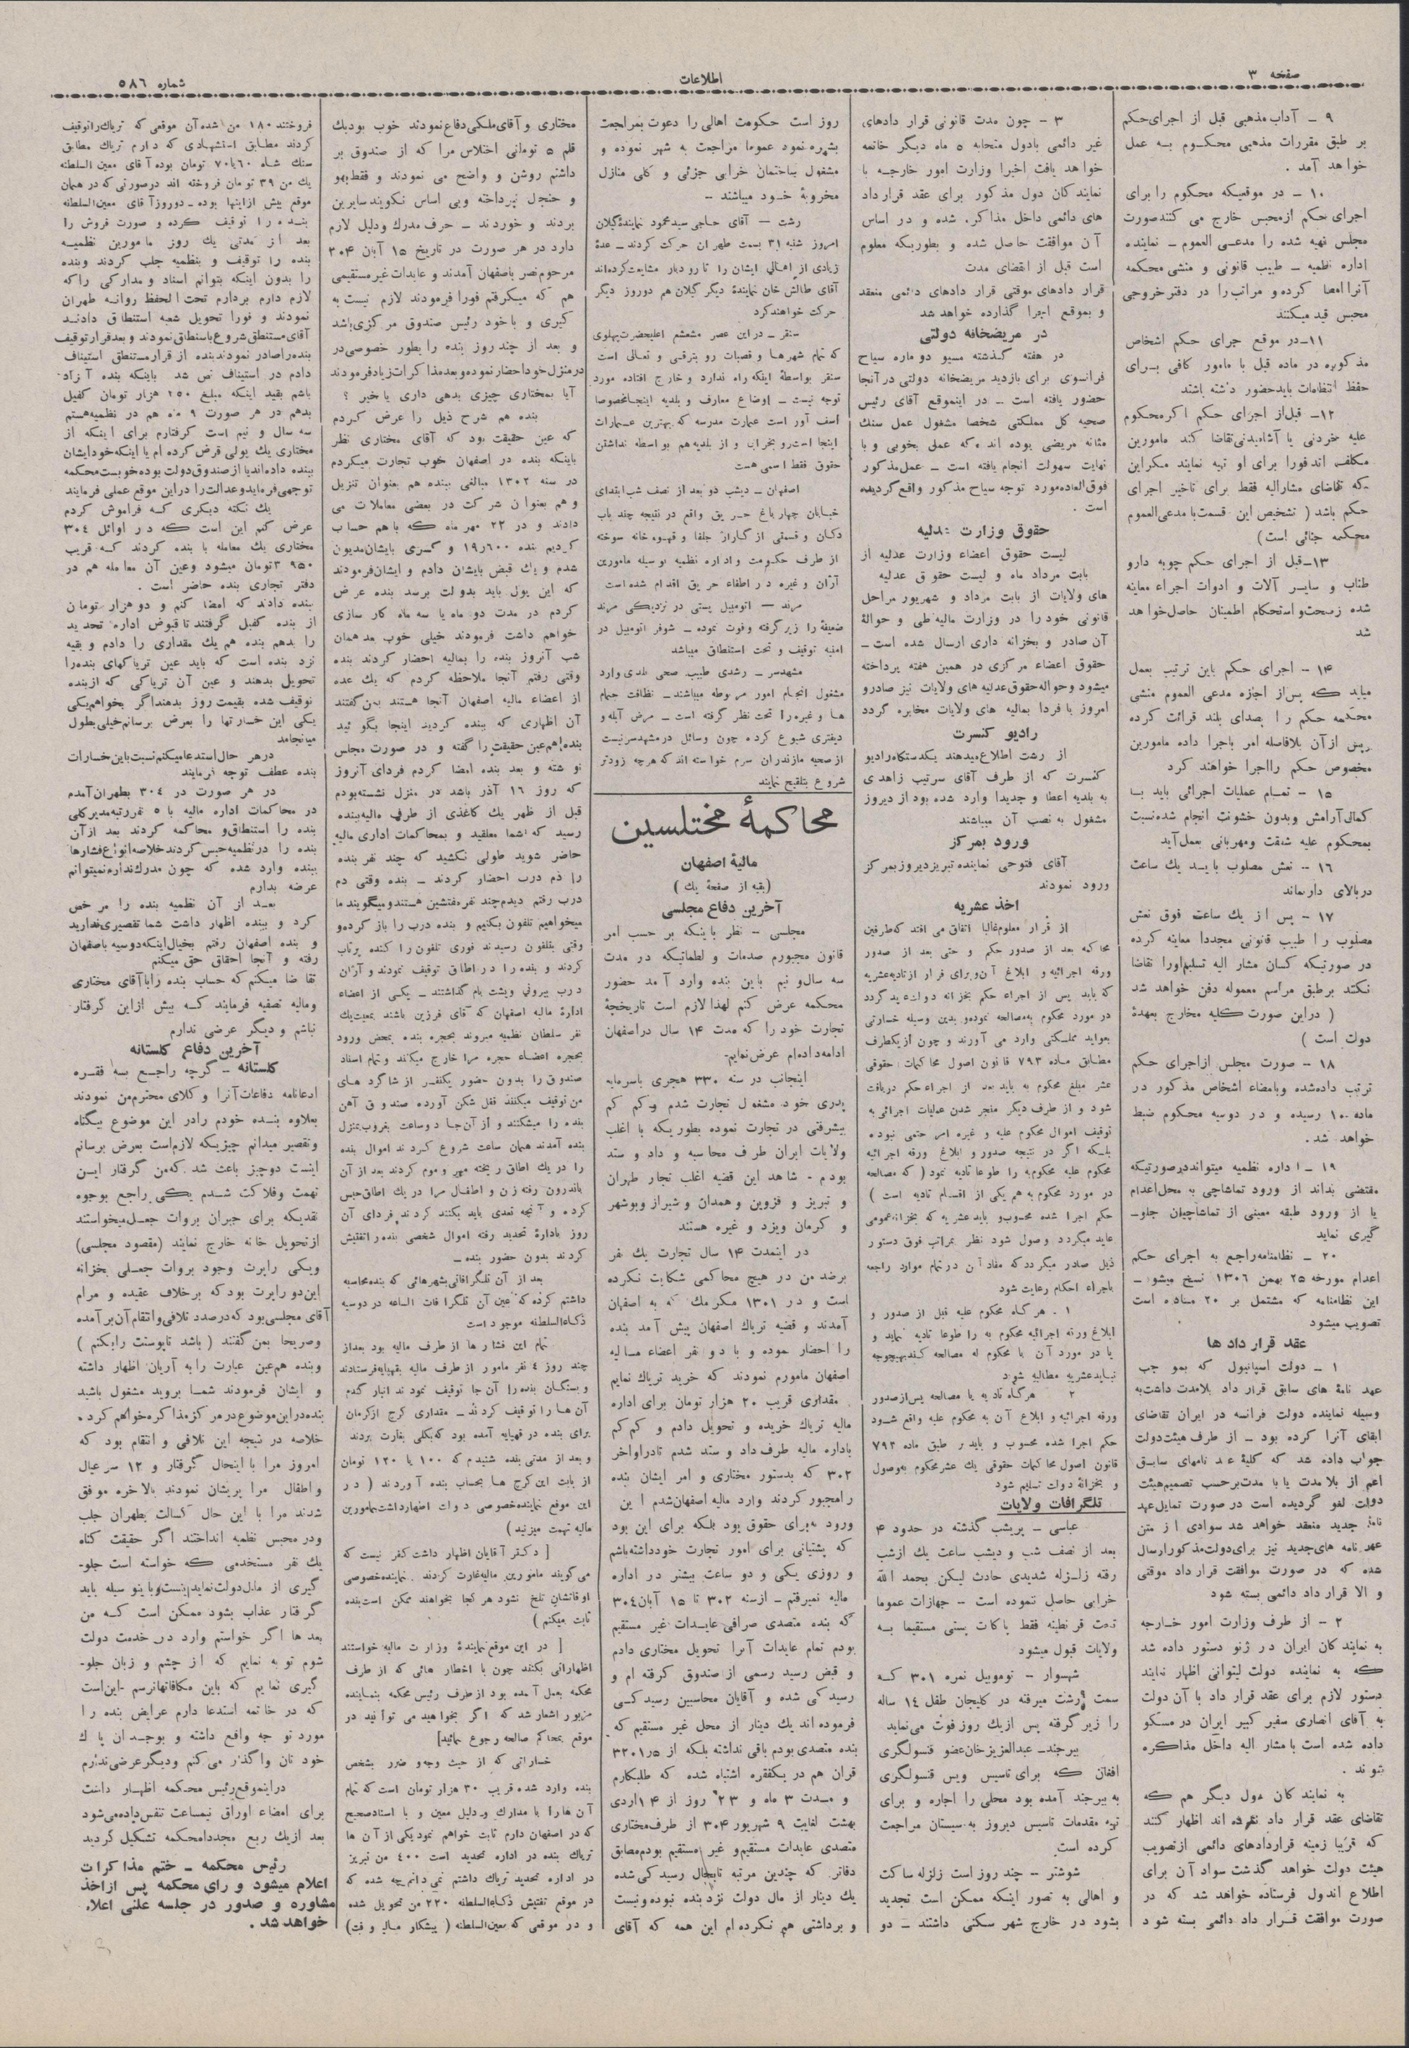 صفحه ۳
اطلاعات
شماره ۵۸۶
۹ ـ آداب مذهبی قبل از اجرای حکم
بر طبق مقررات مذهبی محکوم به عمل
خواهد آمد .
۱۰ ـ در موقعیکه محکوم را برای
اجرای حکم از محبس خارج می کنند صورت
مجلس تهیه شده را مدعی العموم ـ نماینده
اداره نظمیه ـ طبیب قانونی و منشی محکمه
آنرا امضا کرده و مراتب را در دفتر خروجی
محبس قید میکنند
۱۱ـ در موقع جرای حکم اشخاص
مذکوره در ماده قبل با مامور کافی برای
حفظ انتظامات باید حضور داشته باشند
۱۲ـ قبل از اجرای حکم اگر محکوم
علیه خردنی یا آشامیدنی تقاضا کند مامورین
مکلف اند فورا برای او تهیه نمایند مگر این
که تقاضای مشارالیه فقط برای تاخیر اجرای
حکم باشد ( تشخیص این قسمت با مدعی العموم
محکمه جنائی است )
۱۳ـ قبل از اجرای حکم چوبه دارو
طناب و سایر آلات و ادوات اجراء معاینه
شده زصحت و استحکام اطمینان حاصل خواهد
شد
۱۴ ـ اجرای حکم باین ترتیب بعمل
میاید که پس از اجازه مدعی العموم منشی
محکمه حکم را بصدای بلند قرائت کرده
پس از آن بلافاصله امر باجرا داده مامورین
مخصوص حکم رااجرا خواهند کرد
۱۵ ـ تمام عملیات اجرائی باید با
کمال آرامش وبدون خشونت انجام شده نسبت
بمحکوم علیه شفقت ومهربانی بعمل آید
۱۶ ـ نعش مصلوب باید یك ساعت
دربالای دار بماند
۱۷ ـ پس از یك ساعت فوق نعش
مصلوب را طبیب قانونی مجددا معاینه کرده
در صورتیکه کسان مشار الیه تسلیم اورا تقاضا
نکنند بر طبق مراسم معموله دفن خواهد شد
( دراین صورت کلیه مخارج بعهدهٔ
دولت است )
۱۸ ـ صورت مجلس از اجرای حکم
ترتیب داده شده وبامضاء اشخاص مذکور در
ماده ۱۰ رسیده و در دوسیه محکوم ضبط
خواهد شد .
۱۹ ـ اداره نظمیه میتواند در صورتیکه
مقتضی بداند از ورود تماشاچی به محل اعدام
یا از ورود طبقه معینی از تماشاچیان جلوـ
گیری نماید
۲۰ ـ نظامنامه راجع به اجرای حکم
اعدام مورخه ۲۵ بهمن ۱۳۰۶ نسخ میشود ـ
این نظامنامه که مشتمل بر ۲۰ ماده است
تصویب میشود
عقد قرار داد ها
۱ ـ دولت اسپانیول که بمو جب
عهد نامهٔ های سابق قرار داد بلامدت داشت به
وسیله نماینده دولت فرانسه در ایران تقاضای
ابقای آنرا کرده بود ـ از طرف هیئت دولت
جواب داده شد که کلیهٔ عهد نامهای سابق
اعم از بلامدت یا با مدت بر حسب تصمیم هیئت
دولت لغو گردیده است در صورت تمایل عهد
نامهٔ جدید منعقد خواهد شد سوادی از متن
عهد نامه های جدید نیز برای دولت مذکور ارسال
شده که در صورت موافقت قرار داد موقتی
و الا قرار داد دائمی بسته شود
۲ ـ از طرف وزارت امور خارجه
به نمایند کان ایران در ژنو دستور داده شد
که به نماینده دولت لیتوانی اظهار نمایند
دستور لازم برای عقد قرار داد با آن دولت
به آقای انصاری سفیر کبیر ایران در مسکو
داده شده است با مشار الیه داخل مذاکره
شوند .
به نمایند کان دول دیگر هم که
تقاضای عقد قرار داد نکرده اند اظهار کنند
که قریبا زمینه قراردادهای دائمی از تصویب
هیئت دولت خواهد گذشت سواد آن برای
اطلاع اندول فرستاده خواهد شد که در
صورت موافقت قرار داد دائمی بسته شود
۳ ـ چون مدت قانونی قرار دادهای
غیر دائمی بادول متحابه ۵ ماه دیگر خاتمه
خواهد یافت اخیرا وزارت امور خارجه با
نمایند کان دول مذکور برای عقد قرار داد
های دائمی داخل مذاکره شده و در اساس
آن موافقت حاصل شده و بطوریکه معلوم
است قبل از انقضای مدت
قرار دادهای موقتی قرار دادهای دائمی منعقد
و بموقع اجرا گذارده خواهد شد
در مریضخانه دولتی
در هفته گذشته مسیو دوماره سیاح
فرانسوی برای بازدید مریضخانه دولتی در آنجا
حضور یافته است ـ در اینموقع آقای رئیس
صحیه کل مملکتی شخصا مشغول عمل سنگ
مثانه مریضی بوده اند که عملی بخوبی و با
نهایت سهولت انجام یافته است ـ عمل مذکور
فوق العاده مورد توجه سیاح مذکور واقع گردیده
است .
حقوق وزارت عدلیه
لیست حقوق اعضاء وزارت عدلیه از
بابت مرداد ماه و لیست حقوق عدلیه
های ولایات از بابت مرداد و شهریور مراحل
قانونی خود را در وزارت مالیه طی و حوالهٔ
آن صادر و بخزانه داری ارسال شده است ـ
حقوق اعضاء مرکزی در همین هفته پرداخته
میشود و حواله حقوق عدلیه های ولایات نیز صادر و
امروز یا فردا بمالیه های ولایات مخابره گردد
رادیو کنسرت
از رشت اطلاع میدهند یکدستگاه رادیو
کنسرت که از طرف آقای سرتیپ زاهدی
به بلدیه اعطا و جدیدا وارد شده بود از دیروز
مشغول به نصب آن میباشند
ورود بمرکز
آقای فتوحی نماینده تبریز دیروز بمرکز
ورود نمودند
اخذ عشریه
از قرار معلوم غالبا اتفاق می افتد که طرفین
محاکمه بعد از صدور حکم و حتی بعد از صدور
ورقه اجرائیه و ابلاغ آن و برای فرار از تادیه عشریه
که باید پس از اجراء حکم بخزانه دولت عاید گردد
در مورد محکوم به مصالحه نموده و بدین وسیله خسارتی
بعواید مملکتی وارد می آورند و چون از یکطرف
مطابق ماده ۷۹۳ قانون اصول محاکمات حقوقی
عشر مبلغ محکوم به باید بعد از اجراء حکم دریافت
شود و از طرف دیگر منجر شدن عملیات اجرائی به
توقیف اموال محکوم علیه و غیره امر حتمی نبوده
بلکه اگر در نتیجه صدور و ابلاغ ورقه اجرائیه
محکوم علیه محکوم به را طوعا تادیه نمود ( که مصالحه
در مورد محکوم به هم یکی از اقسام تادیه است )
حکم اجرا شده محسوب و باید عشریه که بخزانه عمومی
عاید میگردد وصول شود نظر بمراتب فوق دستور
ذیل صادر میگردد که مفاد آن در تمام موارد راجعه
باجراء احکام رعایت شود
۱ . هرگاه محکوم علیه قبل از صدور و
ابلاغ ورقه اجرائیه محکوم به را طوعا تادیه نماید و
یا در مورد آن با محکوم له مصالحه کند بهیچوجه
نباید عشریه مطالبه شود
۲ هرگاه تادیه یا مصالحه پس از صدور
ورقه اجرائیه و ابلاغ آن به محکوم علیه واقع شود
حکم اجرا شده محسوب و باید بر طبق ماده ۷۹۳
قانون اصول محاکمات حقوقی یك عشر محکوم به وصول
و بخزانهٔ دولت تسلیم شود
تلگرافات ولایات
عباسی ـ پریشب گذشته در حدود ۴
بعد از نصف شب و دیشب ساعت یك از شب
رفته زلزله شدیدی حادث لیکن بحمد الله
خرابی حاصل ننموده است ـ جهازات عموما
تحت قرنطینه فقط پاکات پستی مستقیما به
ولایات قبول میشود
شهسوار ـ توموبیل نمره ۳۰۱ که
سمت رشت میرفته در کلیجان طفل ۱۴ ساله
را زیر گرفته پس از یك روز فوت می نماید
بیرجند ـ عبدالعزیز خان عضو قنسولگری
افغان که برای تاسیس ویس قنسولگری
به بیرجند آمده بود محلی را اجاره و برای
تهیه مقدمات تاسیس دیروز به سیستان مراجعت
کرده است
شوشتر ـ چند روز است زلزله ساکت
و اهالی به تصور اینکه ممکن است تجدید
بشود در خارج شهر سکنی داشتند ـ دو
روز است حکومت اهالی را دعوت بمراجعت
بشهر نمود عموما مراجعت به شهر نموده و
مشغول ساختمان خرابی جزئی و کلی منازل
مخروبهٔ خود میباشند
رشت ـ آقای حاجی سید محمود نمایندهٔ گیلان
امروز شنبه ۳۱ بسمت طهران حرکت کردند ـ عدهٔ
زیادی از اهالی ایشان را تا رودبار مشایعت کرده اند
آقای طالش خان نمایندهٔ دیگر گیلان هم دوروز دیگر
حرکت خواهند کرد
سنقر ـ در این عصر مشعشع اعلیحضرت پهلوی
که تمام شهرها و قصبات رو بترقی و تعالی است
سنقر بواسطهٔ اینکه راه ندارد و خارج افتاده مورد
توجه نیست ـ اوضاع معارف و بلدیه اینجا مخصوصا
اسف آور است عمارت مدرسه که بهترین عمارات
اینجا است رو بخراب و از بلدیه هم بواسطه نداشتن
حقوق فقط اسمی هست
اصفهان ـ دیشب دو بعد از نصف شب ابتدای
خیابان چهار باغ حریق واقع در نتیجه چند باب
دکان و قسمتی از گاراژ جلفا و قهوه خانه سوخته
از طرف حکومت و اداره نظمیه بوسیله مامورین
آژان و غیره در اطفاء حریق اقدام شده است
مرند ـ اتومبیل پستی در نزدیکی مرند
ضعیفهٔ را زیر گرفته وفوت نموده ـ شوفر اتومبیل در
امنیه توقیف و تحت استنطاق میباشد
مشهد سر ـ رشدی طبیب صحی بلدی وارد
مشغول انجام امور مربوطه میباشند ـ نظافت حمام
ها و غیره را تحت نظر گرفته است ـ مرض آبله و
دیفتری شیوع کرده چون وسائل در مشهد سر نیست
از صحیه مازندران سرم خواسته اند که هرچه زودتر
شروع بتلقیح نمایند
محاکمهٔ مختلسین
مالیهٔ اصفهان
( بقیه از صفحهٔ یك )
آخرین دفاع مجلسی
مجلسی ـ نظر باینکه بر حسب امر
قانون مجبورم صدمات و لطماتیکه در مدت
سه سال و نیم باین بنده وارد آمد حضور
محکمه عرض کنم لهذا لازم است تاریخچهٔ
تجارت خود را که مدت ۱۴ سال در اصفهان
ادامه داده ام عرض نمایم.
اینجانب در سنه ۳۳۰ هجری با سرمایه
پدری خود مشغول تجارت شدم و کم کم
پیشرفتی در تجارت نموده بطوریکه با اغلب
ولایات ایران طرف محاسبه و داد و ستد
بودم ـ شاهد این قضیه اغلب تجار طهران
و تبریز و قزوین و همدان و شیراز و بوشهر
و کرمان ویزد و غیره هستند
در اینمدت ۱۴ سال تجارت یك نفر
برضد من در هیچ محاکمی شکایت نکرده
است و در ۱۳۰۱ مکرمك که به اصفهان
آمدند و قضیه تریاك اصفهان پیش آمد بنده
را احضار نموده و با دو نفر اعضاء مالیه
اصفهان مامورم نمودند که خرید تریاك نمایم
مقداری قریب ۲۰ هزار تومان برای اداره
مالیه تریاك خریده و تحویل دادم و کم کم
باداره مالیه طرف داد و ستد شدم تادراواخر
۳۰۲ که بدستور مختاری و امر ایشان بنده
را مجبور کردند وارد مالیه اصفهان شدم این
ورود نه برای حقوق بود بلکه برای این بود
که پشتیبانی برای امور تجارت خود داشته باشم
و روزی یکی و دو ساعت بیشتر در اداره
مالیه نمیرفتم ـ از سنه ۳۰۲ تا ۱۵ آبان ۳۰۴
که بنده متصدی صرافی عایدات غیر مستقیم
بودم تمام عایدات آنرا تحویل مختاری دادم
و قبض رسید رسمی از صندوق گرفته ام و
رسیدگی شده و آقایان محاسبین رسیدگی
فرموده اند یك دینار از محل غیر مستقیم که
بنده متصدی بودم باقی نداشته بلکه از ۳۲۰۱ر۵
قران هم در یکفقره اشتباه شده که طلبکارم
و مدت ۳ ماه و ۲۳ روز از ۱۴ اردی
بهشت لغایت ۹ شهریور ۳۰۴ از طرف مختاری
متصدی عایدات مستقیم و غیر مستقیم بودم مطابق
دفاتر که چندین مرتبه تا بحال رسیدگی شده
یك دینار از مال دولت نزد بنده نبوده و نیست
و برداشتی هم نکرده ام این همه که آقای
مختاری و آقای ملکی دفاع نمودند خوب بود یك
قلم ۵ تومانی اختلاس مرا که از صندوق بر
داشتم روشن و واضح می نمودند و فقط بهو
و جنجال نپرداخته وبی اساس نگویند سایرین
بردند و خوردند ـ حرف مدرك ودلیل لازم
دارد در هر صورت در تاریخ ۱۵ آبان ۳۰۴
مرحوم نصر باصفهان آمدند و عایدات غیر مستقیمی
هم که میگرفتم فورا فرمودند لازم نیست به
گیری و باخود رئیس صندوق مرکزی باشد
و بعد از چند روز بنده را بطور خصوصی در
در منزل خود احضار نموده و بعد مذاکرات زیاد فرمودند
آیا بمختاری چیزی بدهی داری یا خیر ؟
بنده هم شرح ذیل را عرض کردم
که عین حقیقت بود که آقای مختاری نظر
باینکه بنده در اصفهان خوب تجارت میکردم
در سنه ۱۳۰۲ مبالغی ببنده هم بعنوان تنزیل
و هم بعنوان شرکت در بعضی معاملات می
دادند و در ۲۳ مهر ماه که با هم حساب
کردیم بنده ۱۹٫۶۰۰ و کسری بایشان مدیون
شدم و یك قبض بایشان دادم و ایشان فرمودند
که این پول باید بدولت برسد بنده عرض
کردم در مدت دو ماه یا سه ماه کار سازی
خواهم داشت فرمودند خیلی خوب بعد همان
شب آنروز بنده را بمالیه احضار کردند بنده
وقتی رفتم آنجا ملاحظه کردم که یك عده
از اعضاء مالیه اصفهان آنجا هستند بمن گفتند
آن اظهاری که ببنده کردید اینجا بگو ئید
بنده هم عین حقیقت را گفته و در صورت مجلس
نوشته و بعد بنده امضا کردم فردای آنروز
که روز ۱۶ آذر باشد در منزل نشسته بودم
قبل از ظهر یك کاغذی از طرف مالیه ببنده
رسید که شما معلقید و بمحاکمات اداری مالیه
حاضر شوید طولی نکشید که چند نفر بنده
را دم درب احضار کردند ـ بنده وقتی دم
درب رفتم دیدم چند نفر مفتشین هستند و میگویند ما
میخواهیم تلفون بکنیم و بنده درب را باز کرده و
وقتی بتلفون رسیدند فوری تلفون را کنده پرتاب
کردند و بنده را در اطاق توقیف نمودند و آژان
درب بیرونی وپشت بام گذاشتند ـ یکی از اعضاء
ادارهٔ مالیه اصفهان که آقای فرزین باشند بمعیت یك
نفر سلطان نظمیه میروند بحجره بنده بمحض ورود
بحجره اعضاء حجره مرا خارج میکنند و تمام اسناد
صندوق را بدون حضور یکنفر از شاگرد های
من توقیف میکنند قفل شکن آورده صندوق آهن
بنده را میشکنند و از آن جا دو ساعت بغروب بمنزل
بنده آمدند همان ساعت شروع کردند اموال بنده
را در یك اطاق ریخته مهر و موم کردند بعد از آن
باندرون رفته زن و اطفال مرا در یك اطاق حبس
کرده و آنچه تعدی باید بکنند کردند فردای آن
روز باداره تحدید رفته اموال شخصی بنده را تفتیش
کردند بدون حضور بنده ـ
بعد از آن تلگرافاتی بشهر هائی که بنده محاسبه
داشتم کرده که عین آن تلگرافات الساعه در دوسیه
ذکاءالسلطنه موجود است
تمام این فشارها از طرف مالیه بود بعد از
چند روز ۴ نفر مامور از طرف مالیه بقهپایه فرستادند
و بستگان بنده را آن جا توقیف نمودند انبار گندم
آن ها را توقیف کردند ـ مقداری کرچ از کرمان
برای بنده در قهپایه آمده بود که بکلی بغارت بردند
و بعد از مدتی بنده شنیدم که ۱۰۰ یا ۱۲۰ تومان
از بابت این کرچ ها بحساب بنده آوردند ( در
این موقع نماینده خصوصی دولت اظهار داشت بمامورین
مالیه تهمت میزنید )
[ دکتر آقایان اظهار داشت کفر نیست که
می گویند مامورین مالیه غارت کردند نماینده خصوصی
اوقاتشان تلخ نشود هر کجا بخواهند ممکن است بنده
ثابت میکنم )
[ در این موقع نمایندهٔ وزارت مالیه خواستند
اظهاراتی بکنند چون با اخطار هائی که از طرف
محکمه بعمل آمده بود از طرف رئیس محکمه بنماینده
مزبور اشعار شد که اگر بخواهید می توانید در
موقع بمحاکم صالحه رجوع نمائید]
خساراتی که از حیث وجه و ضرر بشخص
بنده وارد شده قریب ۳۰ هزار تومان است که تمام
آن ها را با مدارك ودلیل معین و با اسناد صحیح
که در اصفهان دارم ثابت خواهم نمود یکی از آن ها
تریاك بنده در اداره تحدید است ۴۰۰ من تبریز
در اداره تحدید تریاك داشتم نمی دانم چه شده که
در موقع تفتیش ذکاءالسلطنه ۲۲۰ من تحویل شده
و در موقعی که معین السلطنه ( پیشکار مالیه وقت )
فروختند ۱۸۰ من شده آن موقعی که تریاك را توقیف
کردند مطابق استشهادی که دارم تریاك مطابق
سنك شاه ۶۰ یا ۷۰ تومان بوده آقای معین السلطنه
یك من ۳۹ تومان فروخته اند در صورتی که در همان
موقع بیش از اینها بوده ـ دوروز آقای معین السلطنه
بنده را توقیف کرده و صورت فروش را
بعد از مدتی یك روز مامورین نظمیه
بنده را توقیف و بنظمیه جلب کردند وبنده
را بدون اینکه بتوانم اسناد و مدارکی راکه
لازم دارم بردارم تحت الحفظ روانه طهران
نمودند و فورا تحویل شعبه استنطاق دادند
آقای مستنطق شروع باستنطاق نمودند و بعد قرار توقیف
بنده را صادر نمودند بنده از قرار مستنطق استیناف
دادم در استیناف نقض شد باینکه بنده آزاد
باشم بقید اینکه مبلغ ۲۵۰ هزار تومان کفیل
بدهم در هر صورت ۹ ماه هم در نظمیه هستم
سه سال و نیم است گرفتارم برای اینکه از
مختاری یك پولی قرض کرده ام یا آنیکه خودایشان
ببنده داده اند یا از صندوق دولت بوده خوبست محکمه
توجهی فرماید و عدالت را در این موقع عملی فرمایند
یك نکته دیگری که فراموش کردم
عرض کنم این است که در اوائل ۳۰۴
مختاری یك معامله با بنده کردند که قریب
۳۹۵۰ تومان میشود وعین آن معامله هم در
دفتر تجاری بنده حاضر است .
بنده دادند که امضا کنم و دو هزار تومان
از بنده کفیل گرفتند تا قبوض اداره تحدید
را بدهم بنده هم یك مقداری را دادم و بقیه
نزد بنده است که باید عین تریاکهای بنده را
تحویل بدهند و عین آن تریاکی که از بنده
توقیف شده بقیمت روز بدهند اگر بخواهم یکی
یکی این خسارتها را بعرض برسانم خیلی بطول
میانجامد
در هر حال استدعا میکنم نسبت باین خسارات
بنده عطف توجه فرمایند
در هر صورت در ۳۰۴ بطهران آمده
در محاکمات اداره مالیه با ۵ نفر رتبه مدیر کلی
بنده را استنطاق و محاکمه کردند بعد از آن
بنده را در نظمیه حبس کردند خلاصه انواع فشارها
ببنده وارد شده که چون مدرك ندارم نمیتوانم
عرضه بدارم
بعد از آن نظمیه بنده را مرخص
کرد و ببنده اظهار داشت شما تقصیری ندارید
و بنده اصفهان رفتم بخیال اینکه دوسیه باصفهان
رفته و آنجا احقاق حق میکنم
تقاضا میکنم که حساب بنده را با آقای مختاری
ومالیه تصفیه فرمایند که بیش از این گرفتار
نباشم و دیگر عرضی ندارم
آخرین دفاع گلستانه
گلستانه ـ گرچه راجع به فقره
ادعانامه دفاعات آنرا وکلای محترم من نمودند
بعلاوه بنده خودم رادر این موضوع بیگناه
وتقصیر میدانم چیزیکه لازم است بعرض برسانم
اینست دوچیز باعث شد که من گرفتار این
تهمت وفلاکت شدم یکی راجع بوجوه
نقدیکه برای جبران بروات جعلی میخواستند
از تحویل خانه خارج نمایند (مقصود مجلسی)
ویکی راپرت وجود بروات جعلی بخزانه
این دو راپرت بود که برخلاف عقیده و مرام
آقای مجلسی بود که درصدد تلافی و انتقام آن بر آمده
وصریحا بمن گفتند ( باشد تا پوستت را بکنم )
وبنده هم عین عبارت را به آریان اظهار داشته
و ایشان فرمودند شما بروید مشغول باشید
بنده در این موضوع در مرکز مذاکره خواهم کرد .
خلاصه در نتیجه این تلافی و انتقام بود که
امروز مرا با اینحال گرفتار و ۱۲ سر عیال
و اطفال مرا پریشان نمودند بالاخره موفق
شدند مرا با این حال کسالت بطهران جلب
ودر محبس نظمیه انداختند اگر حقیقت گناه
یك نفر مستخدمی که خواسته است جلوـ
گیری از مال دولت نماید اینست و باینوسیله باید
گرفتار عذاب بشود ممکن است که من
بعدها اگر خواستم وارد در خدمت دولت
شوم توبه نمایم که از چشم و زبان جلوـ
گیری نمایم که باین مکافاتها نرسم ـ این است
که در خاتمه استدعا دارم عرایض بنده را
مورد توجه واقع داشته و بوجدان پاك
خودتان واگذار می کنم ودیگر عرضی ندارم
در اینموقع رئیس محکمه اظهار داشت
برای امضاء اوراق نیمساعت تنفس داده می شود
بعد از یك ربع مجددا محکمه تشکیل گردید
رئیس محکمه ـ ختم مذاکرات
اعلام میشود و رای محکمه پس از اخذ
مشاوره و صدور در جلسه علنی اعلام
خواهد شد .